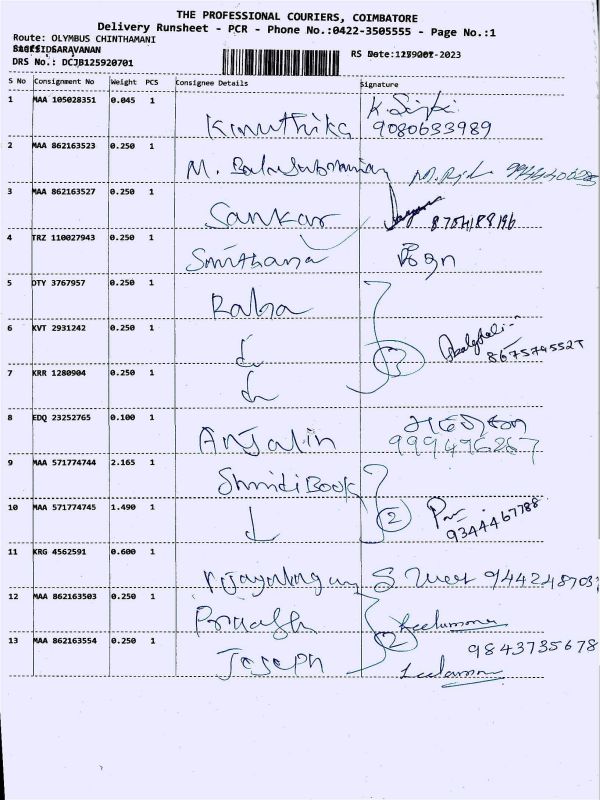 THE PROFESSIONAL COURIERS, COIMBATORE
Delivery Runsheet - PCR - Phone No.:0422-3505555 - Page No.:1
Route: OLYMBUS CHINTHAMANI
SARAVANAN
RS Date: -2023
DRS No.: DCJB125920701
S No Consignment No Weight PCS Consignee Details Signature
1 MAA 105028351 0.045 1 Karuthika K.
9080633989
2 MAA 862163523 0.250 1 M. Balasubramaniam M.
3 MAA 862163527 0.250 1 Sankar
8754188196
4 TRZ 110027943 0.250 1
5 DTY 3767957 0.250 1
6 KVT 2931242 0.250 1
3 8675745527
7 KRR 1280904 0.250 1
8 EDQ 23252765 0.100 1 Anjalin
999496267
9 MAA 571774744 2.165 1 Book
10 MAA 571774745 1.490 1 2
9344467788
11 KRG 4562591 0.600 1 S.
12 MAA 862163503 0.250 1 Leelamma
2 9843735678
13 MAA 862163554 0.250 1 Joseph